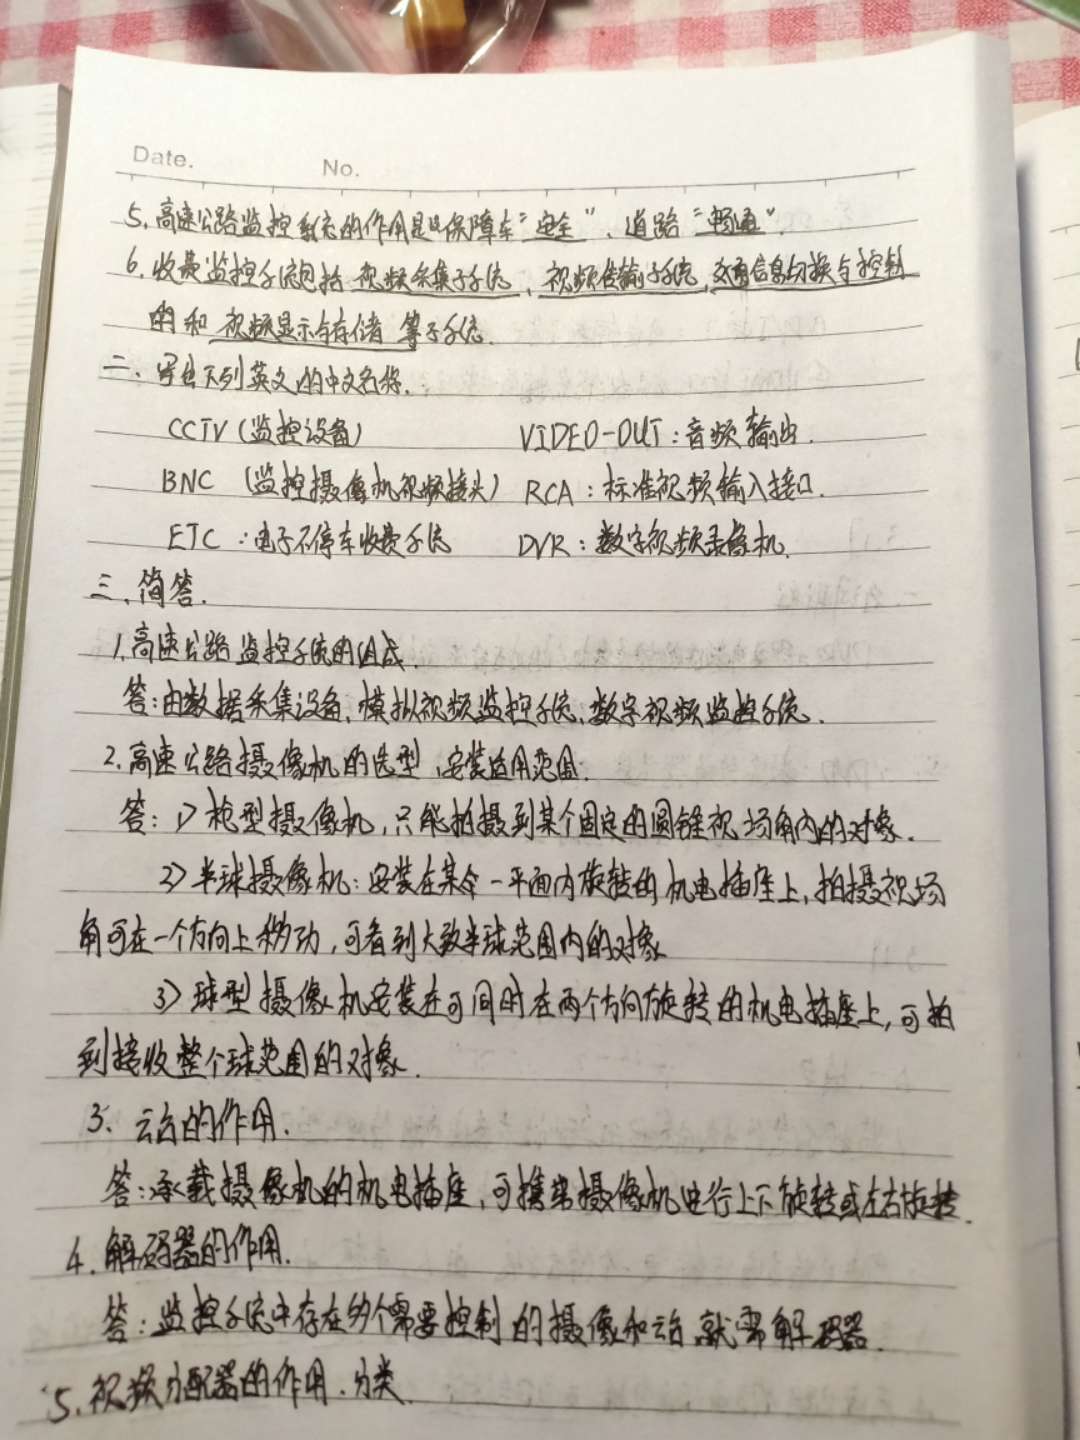 Date. No.
5、高速公路监控系统的作用是"保障车"安全"、道路"畅通"
6、收费监控系统包括 视频采集子系统、视频传输子系统、交通信息切换与控制
的和 视频显示与存储 等子系统.
二、写出下列英文的中文名称.
CCTV (监控设备) VIDEO-OUT:音频输出.
BNC (监控摄像机视频接头) RCA:标准视频输入接口.
ETC:电子不停车收费系统 DVR:数字视频录像机.
三.简答.
1.高速公路监控系统的组成.
答:由数据采集设备、模拟视频监控系统、数字视频监控系统.
2.高速公路摄像机的选型、安装适用范围.
答:1)枪型摄像机,只能拍摄到某个固定的圆锥视场角内的对象.
2)半球摄像机:安装在某个一平面内旋转的机电插座上,拍摄视场
角可在一个方向上移动,可看到大致半球范围内的对象
3)球型摄像机安装在可同时在两个方向旋转的机电插座上,可拍
到接收整个球范围的对象.
3.云台的作用.
答:承载摄像机的机电插座,可携带摄像机进行上下旋转或左右旋转.
4.解码器的作用.
答:监控系统中存在多个需要控制的摄像和云台就需解码器.
5.视频分配器的作用.分类